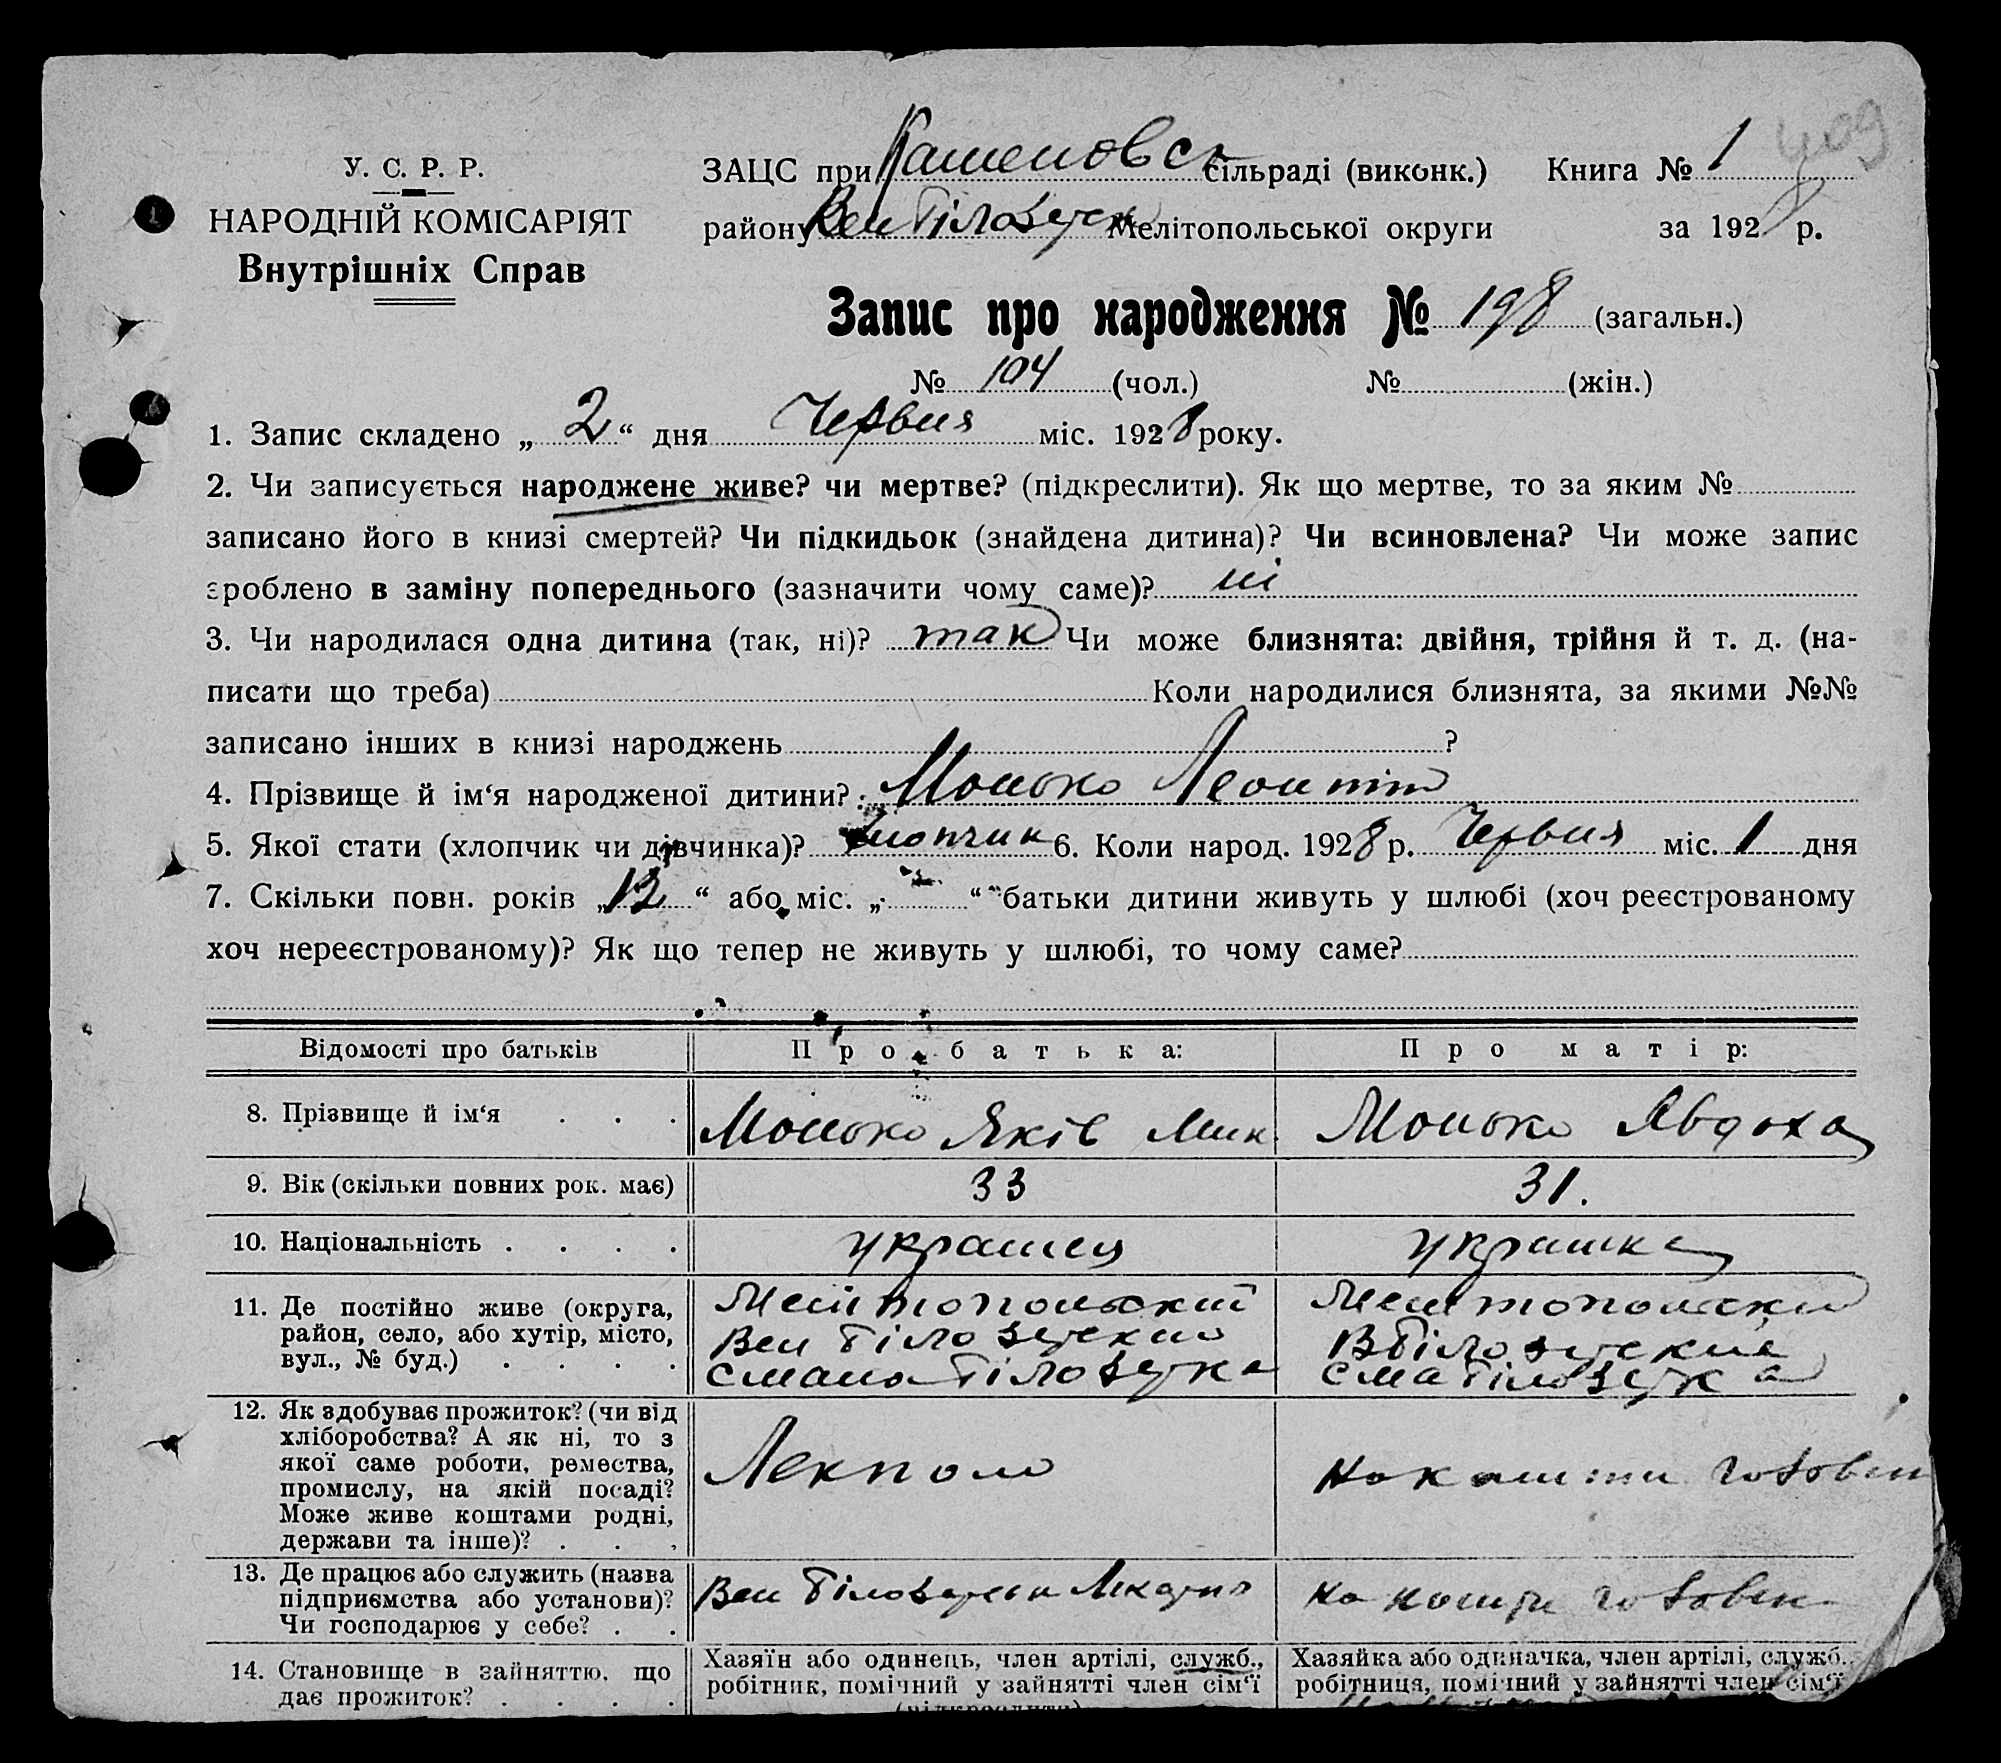 409
У. С. Р. Р.
НАРОДНІЙ КОМІСАРІЯТ
Внутрішніх Справ
ЗАЦС при сільраді (виконк.) Книга № 1
району Вел Білозерск Мелітопольської округи за 1928 р.
Запис про народження № 198 (загальн.)
№ 104 (чол.) № (жін.)
1. Запис складено „ 2 “ дня Червня міс. 1928 року.
2. Чи записується народжене живе? чи мертве? (підкреслити). Як що мертве, то за яким №
записано його в книзі смертей? Чи підкидьок (знайдена дитина)? Чи всиновлена? Чи може запис
зроблено в заміну попереднього (зазначити чому саме)? ні
3. Чи народилася одна дитина (так, ні)? так Чи може близнята: двійня, трійня й т. д. (на-
писати що треба) Коли народилися близнята, за якими №№
записано інших в книзі народжень ?
4. Прізвище й ім‘я народженої дитини? Монько Леонтій
5. Якої стати (хлопчик чи дівчинка)? хлопчик 6. Коли народ. 1928 р. Червня міс. 1 дня
7. Скільки повн. років „ 12 “ або міс. „ “ батьки дитини живуть у шлюбі (хоч реєстрованому
хоч нереєстрованому)? Як що тепер не живуть у шлюбі, то чому саме?
Відомості про батьків Про батька: Про матір:
8. Прізвище й ім‘я . . . Монько Яків Мик. Монько Явдоха
9. Вік (скільки повних рок. має) 33 31.
10. Національність . . . . украінец украінка
11. Де постійно живе (округа,
район, село, або хутір, місто,
вул., № буд.) . . . .
Мелітопольский
Вел Білозерский
Смала Білозерка
Мелітопольский
В Білозерский
с Мала Білозерка
12. Як здобуває прожиток? (чи від
хліборобства? А як ні, то з
якої саме роботи, ремества,
промислу, на якій посаді?
Може живе коштами родні,
держави та інше)? . . .
Лекпом
На кошти чоловік
13. Де працює або служить (назва
підприємства або установи)?
Чи господарює у себе? . .
Вел Білозерська
На кошти чоловік
14. Становище в зайняттю, що
дає прожиток? . . . .
Хазяїн або одинець, член артілі, служб.,
робітник, помічний у зайнятті член сім‘ї
(підкреслити)
Хазяйка або одиначка, член артілі, служб.,
робітниця, помічний у зайнятті член сім‘ї